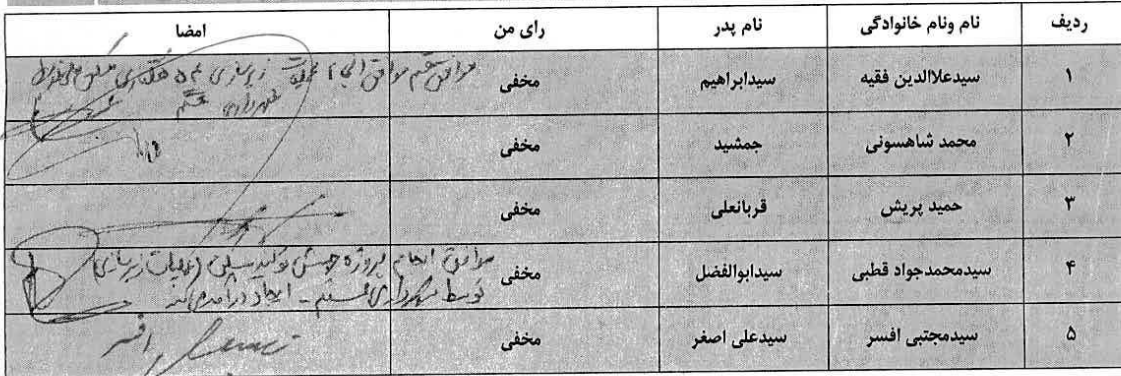 ردیف نام ونام خانوادگی نام پدر رای من امضا
۱ سیدعلاالدین فقیه سیدابراهیم مخفی
موافق زیرسازی
۲ محمد شاهسونی جمشید مخفی
۳ حمید پریش قربانعلی مخفی
۴ سیدمحمدجواد قطبی سیدابوالفضل مخفی
موافق انجام پروژه (عملیات زیرسازی)
توسط شهرداری هستم - ایجاد درآمد می‌کند
۵ سیدمجتبی افسر سیدعلی اصغر مخفی افسر